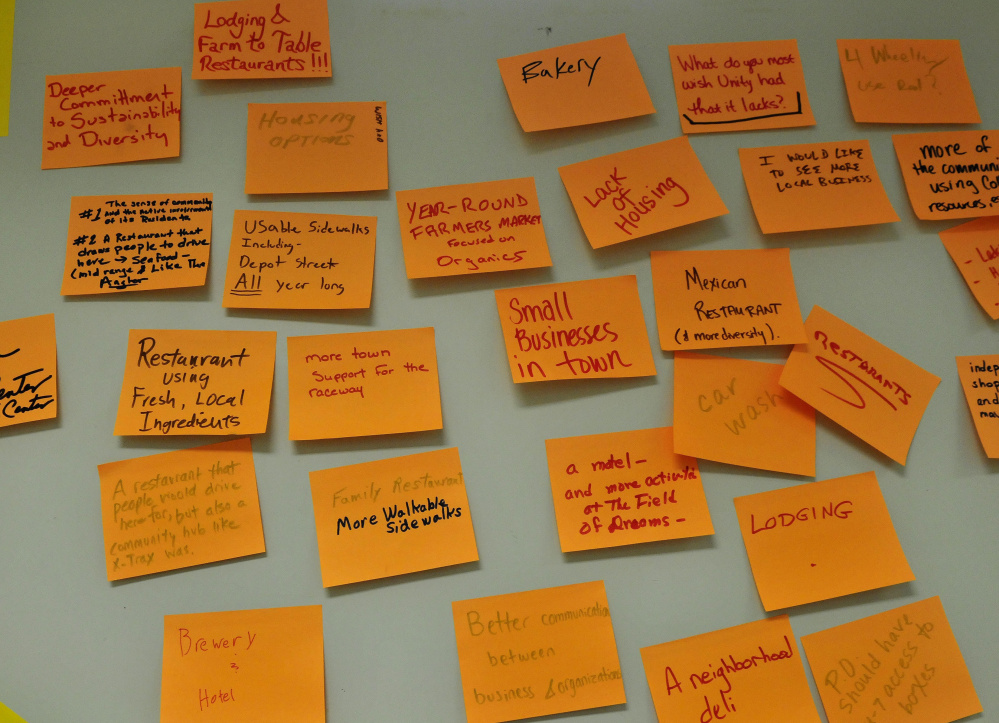 Lodging &
Farm to Table
Restaurants!!!
Deeper
Committment
to Sustainability
and Diversity
Housing
options
Bakery
What do you most
wish Unity had
that it lacks?
4 Wheeling
use Rod?
#1 The sense of community
and the active involvement
of its Residents
#2 A Restaurant that
draws people to drive
here → Seafood -
(mid range $ Like The
Anchor
Usable Sidewalks
Including -
Depot street
All year long
Year-Round
Farmers Market
focused on
Organics
Lack
of
Housing
I would like
to see more
local business
more of
the commun
using
resources,
Small
Businesses
in town
Mexican
Restaurant
(& more diversity).
Restarants
Center
Center
Restaurant
using
Fresh, Local
Ingredients
more town
support for the
raceway
car
wash
indep
shop
and
A restaurant that
people would drive
here for, but also a
community hub like
X-Tray was.
Family Restaurant
More Walkable
Sidewalks
a motel -
and more activities
at The Field
of Dreams -
Lodging
Brewery
&
Hotel
Better communication
between
business & organizations
A neighborhood
deli
P.O.
should have
-7 access to
boxes